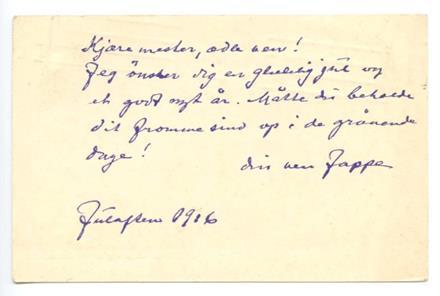 Kjære mester, ædle ven!
Jeg ønsker dig en gledelig jul og
et godt nyt år. Måtte du beholde
dit fromme sind op i de grånende
dage!
din ven Jappe
Julaften 1916